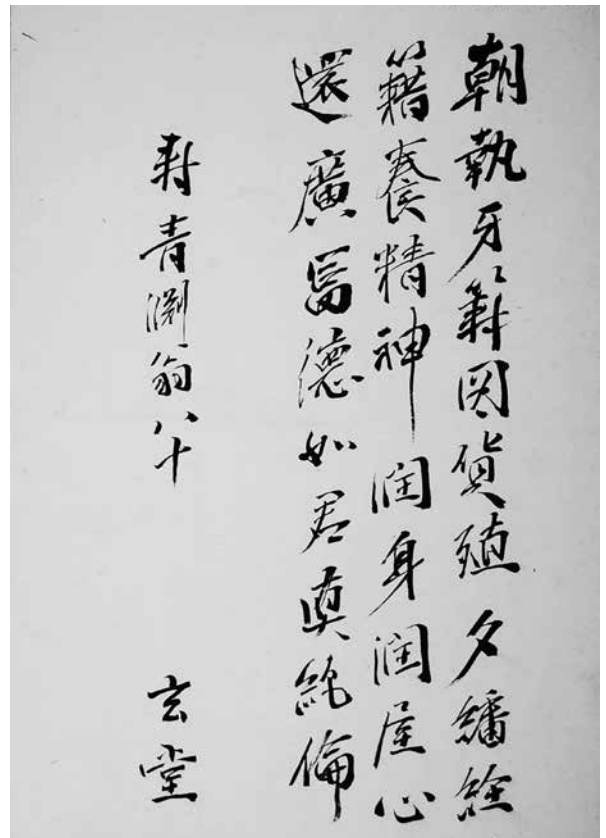 朝執牙籌図貨殖夕繙經
籍養精神潤身潤屋心
還廣冨德如君真絶倫
寿青淵翁八十
玄堂